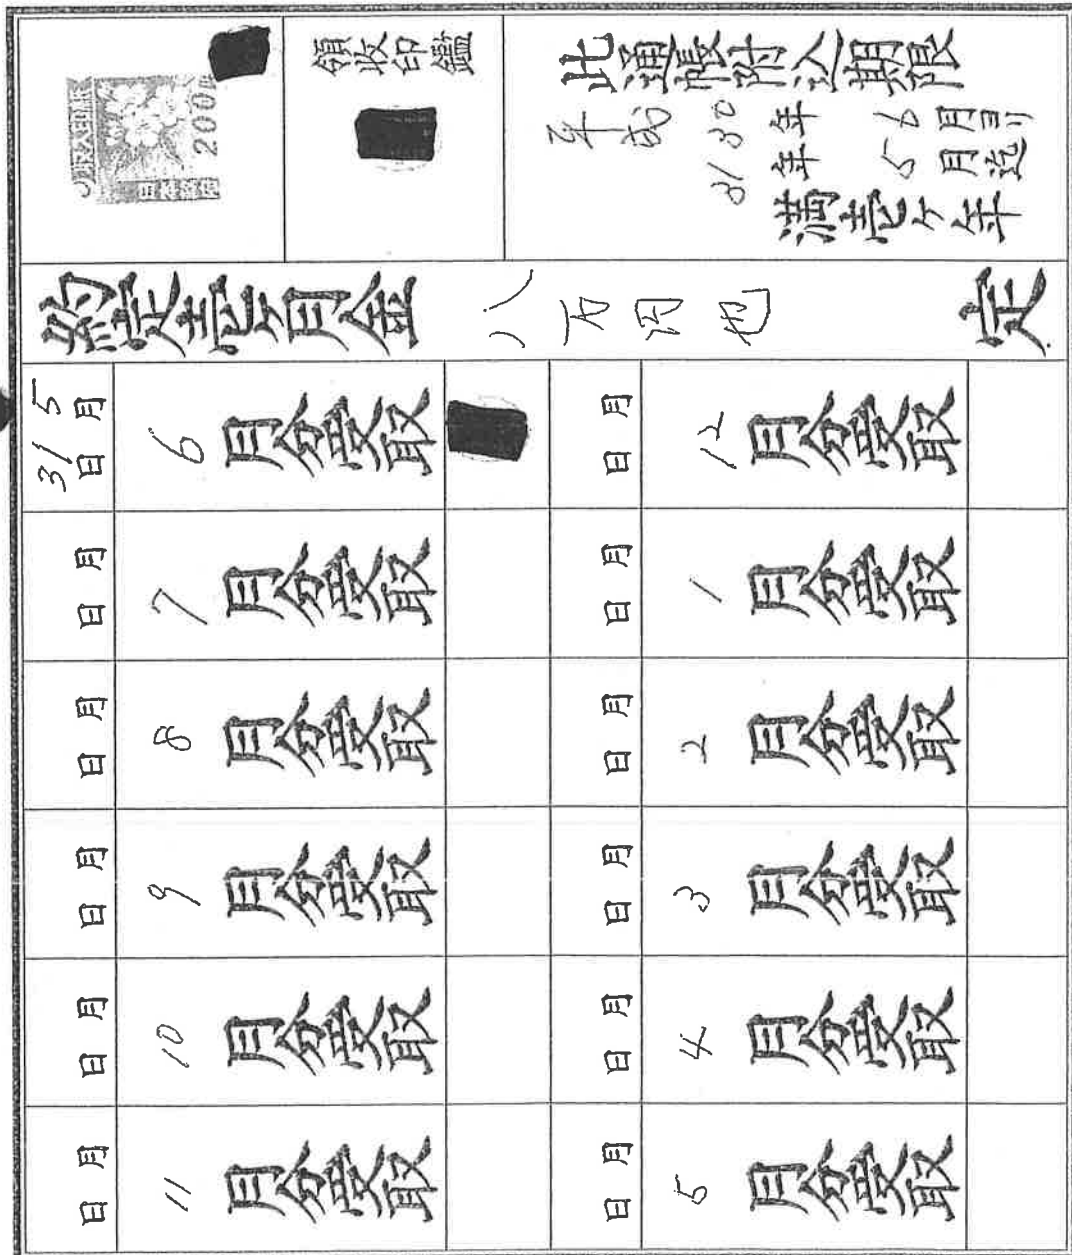 此通帳附込期限
平成30年6月ヨリ
31年5月迄
満壱ケ年
領収印鑑
収入印紙
200円
日本政府
定
約定壱ケ月金 八万円也
5月31日 6月分受取
月 日 7月分受取
月 日 8月分受取
月 日 9月分受取
月 日 10月分受取
月 日 11月分受取
月 日 12月分受取
月 日 1月分受取
月 日 2月分受取
月 日 3月分受取
月 日 4月分受取
月 日 5月分受取